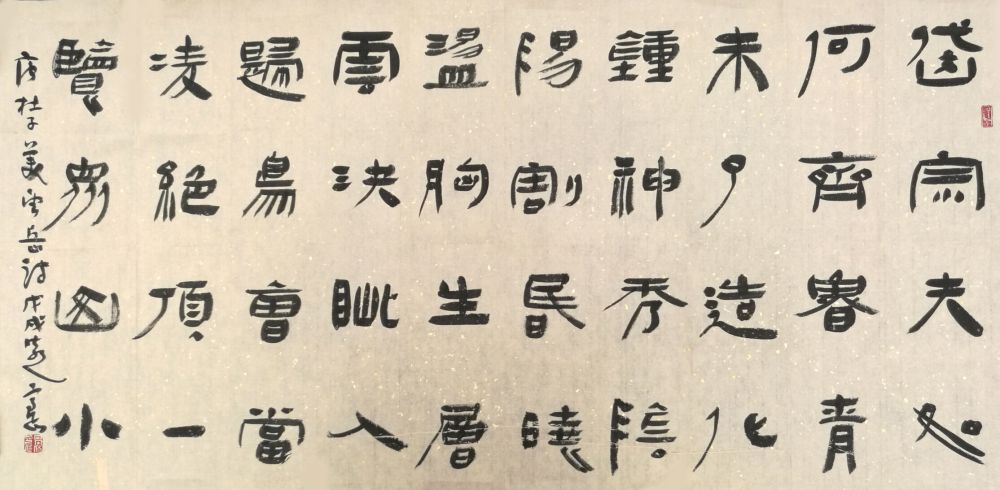 岱宗夫如
何齊魯青
未了造化
鍾神秀陰
陽割昬曉
盪胸生層
雲決眦入
歸鳥會當
凌絕頂一
覽眾山小
唐杜子美望岳詩戊戌